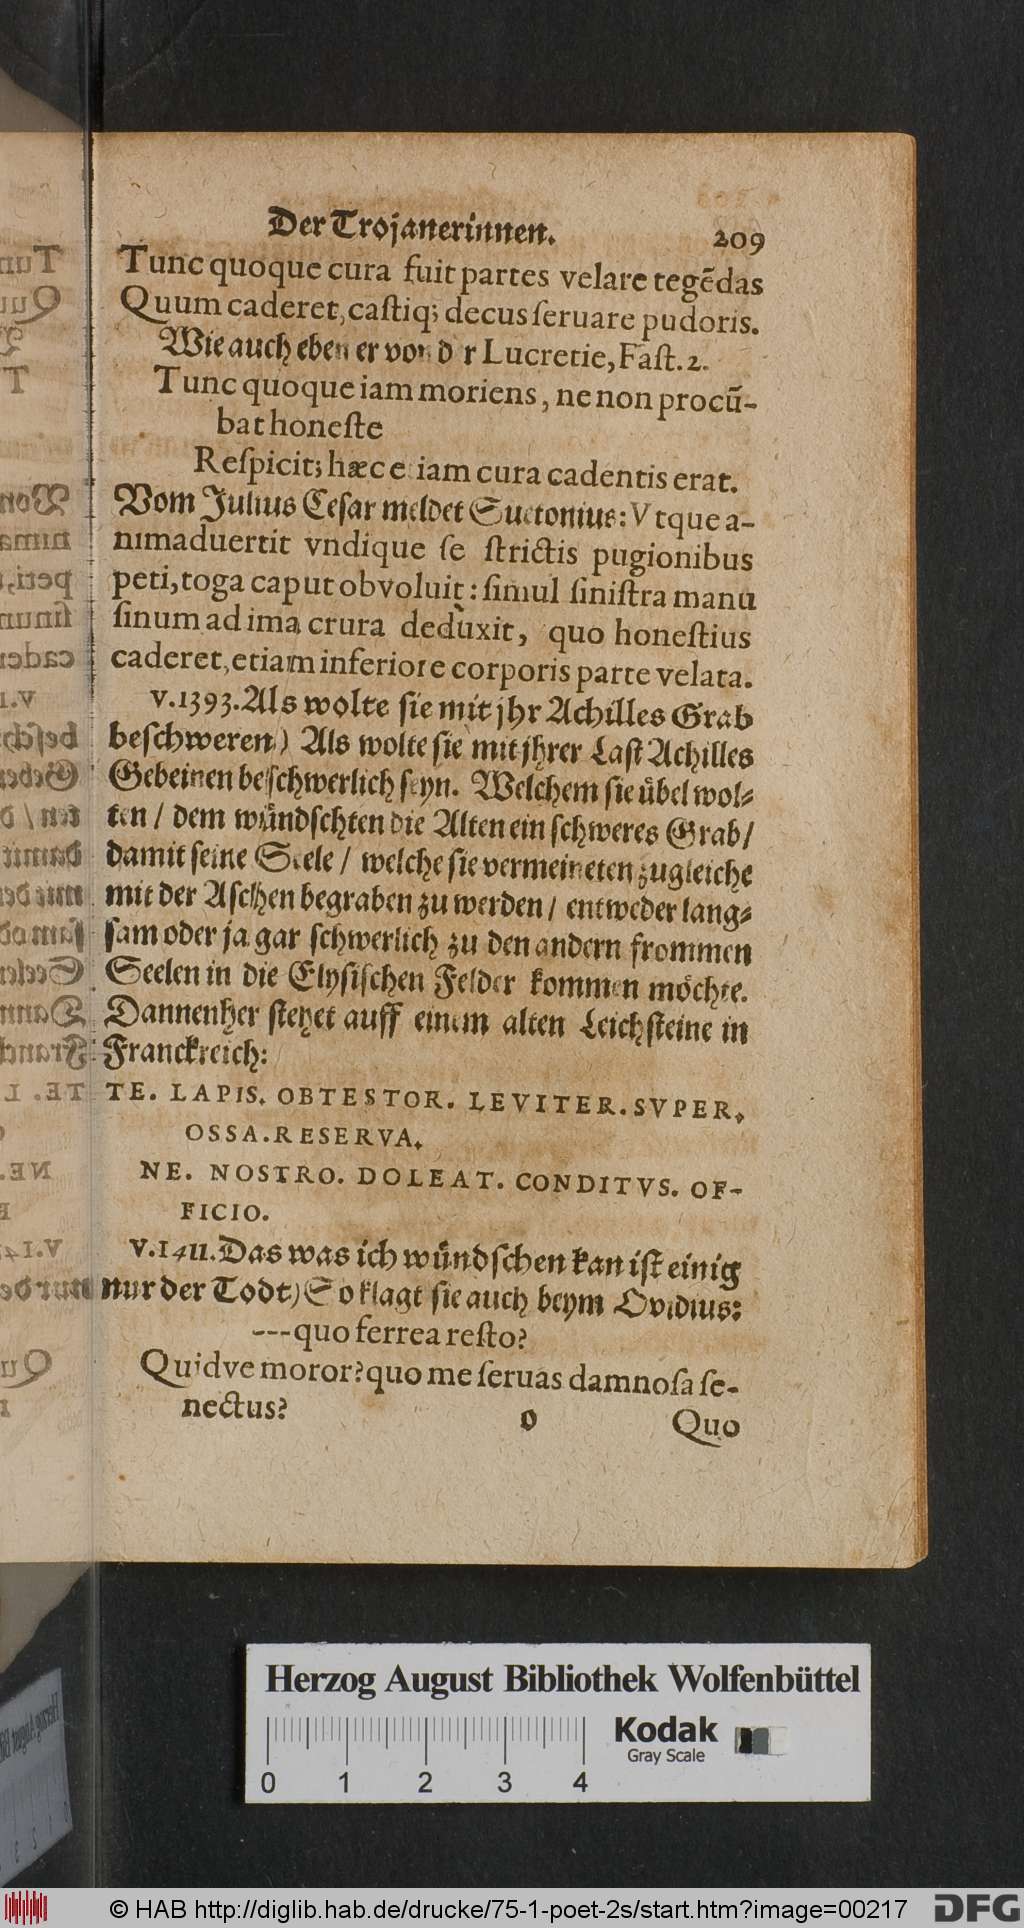 Der Trojanerinnen. 209
Tunc quoque cura fuit partes velare tegēdas
Quum caderet, castiq; decus seruare pudoris.
Wie auch eben er von der Lucretie, Fast. 2.
Tunc quoque iam moriens, ne non procū-
bat honeste
Respicit; hæc etiam cura cadentis erat.
Vom Julius Cesar meldet Suetonius: Vtque a-
nimaduertit vndique se strictis pugionibus
peti, toga caput obvoluit: simul sinistra manu
sinum ad ima crura deduxit, quo honestius
caderet, etiam inferiore corporis parte velata.
v. 1393. Als wolte sie mit jhr Achilles Grab
beschweren) Als wolte sie mit jhrer Last Achilles
Gebeinen beschwerlich seyn. Welchem sie übel wol-
ten / dem wündschten die Alten ein schweres Grab /
damit seine Seele / welche sie vermeineten zugleiche
mit der Aschen begraben zu werden / entweder lang-
sam oder ja gar schwerlich zu den andern frommen
Seelen in die Elysischen Felder kommen möchte.
Dannenher stehet auff einem alten Leichsteine in
Franckreich:
TE. LAPIS. OBTESTOR. LEVITER. SVPER.
OSSA. RESERVA.
NE. NOSTRO. DOLEAT. CONDITVS. OF-
FICIO.
V. 1411. Das was ich wündschen kan ist einig
nur der Todt) So klagt sie auch beym Ovidius:
---quo ferrea resto?
Quidve moror? quo me seruas damnosa se-
nectus?
O Quo
Herzog August Bibliothek Wolfenbüttel
Kodak
Gray Scale
0 1 2 3 4
© HAB http://diglib.hab.de/drucke/75-1-poet-2s/start.htm?image=00217
DFG